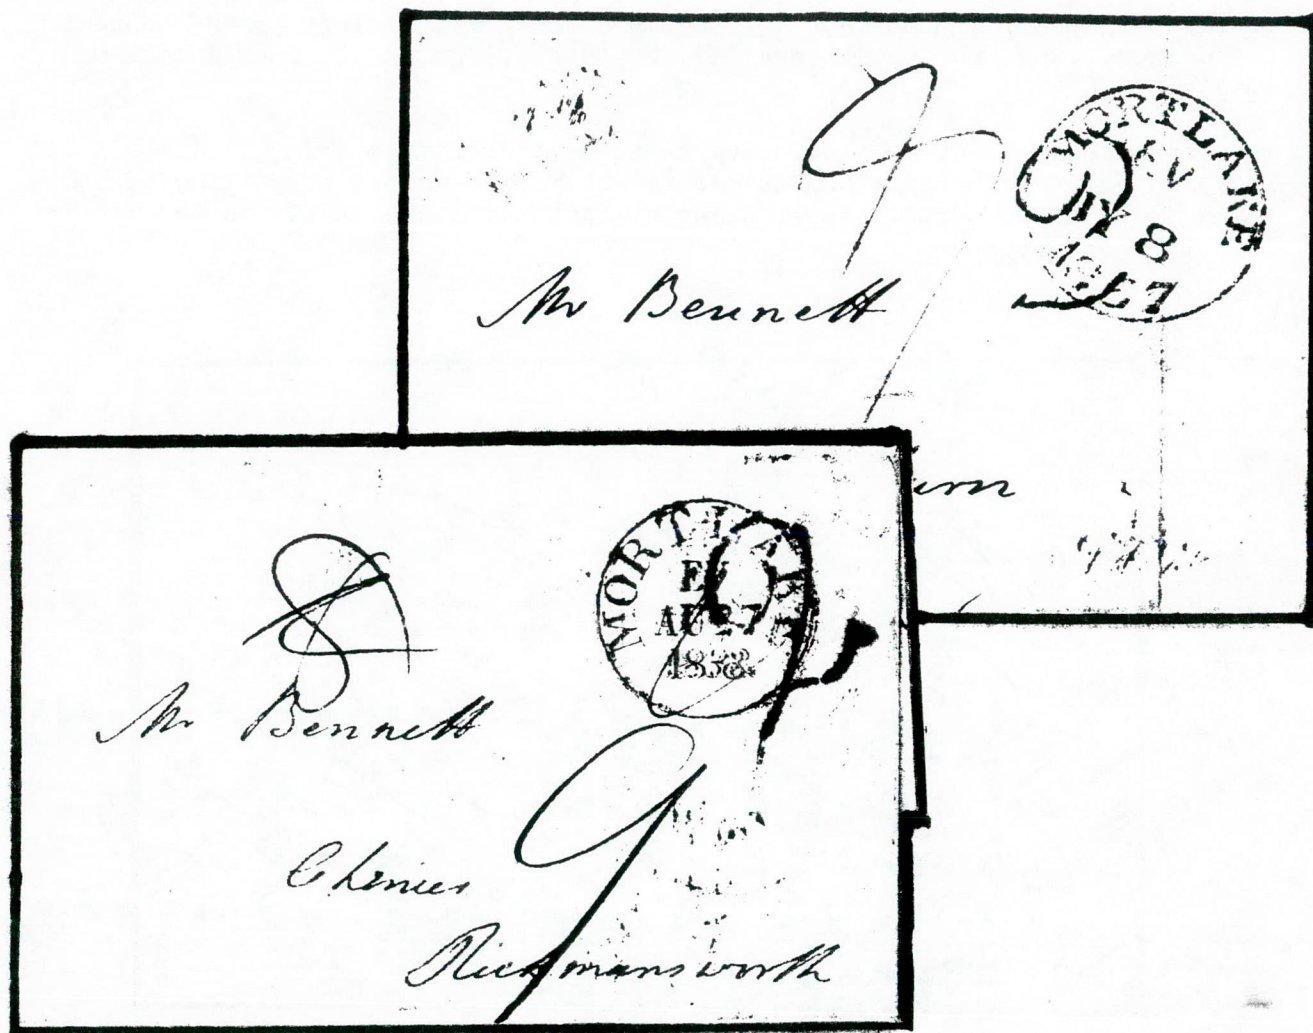 9
MORTLAKE
EV
8
Mr Bennett
8
MORTLAKE
EV
AU 27
1838
Mr Bennett
9
Chenies
Rickmansworth